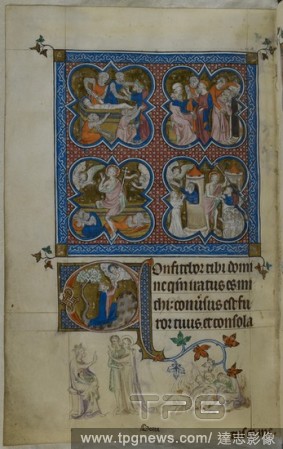 Confitebor tibi domi
ne qm iratus es mi
chi: conūsus est fu
ror tuus et consola
TPG
www.tpgnews.com / 達志影像